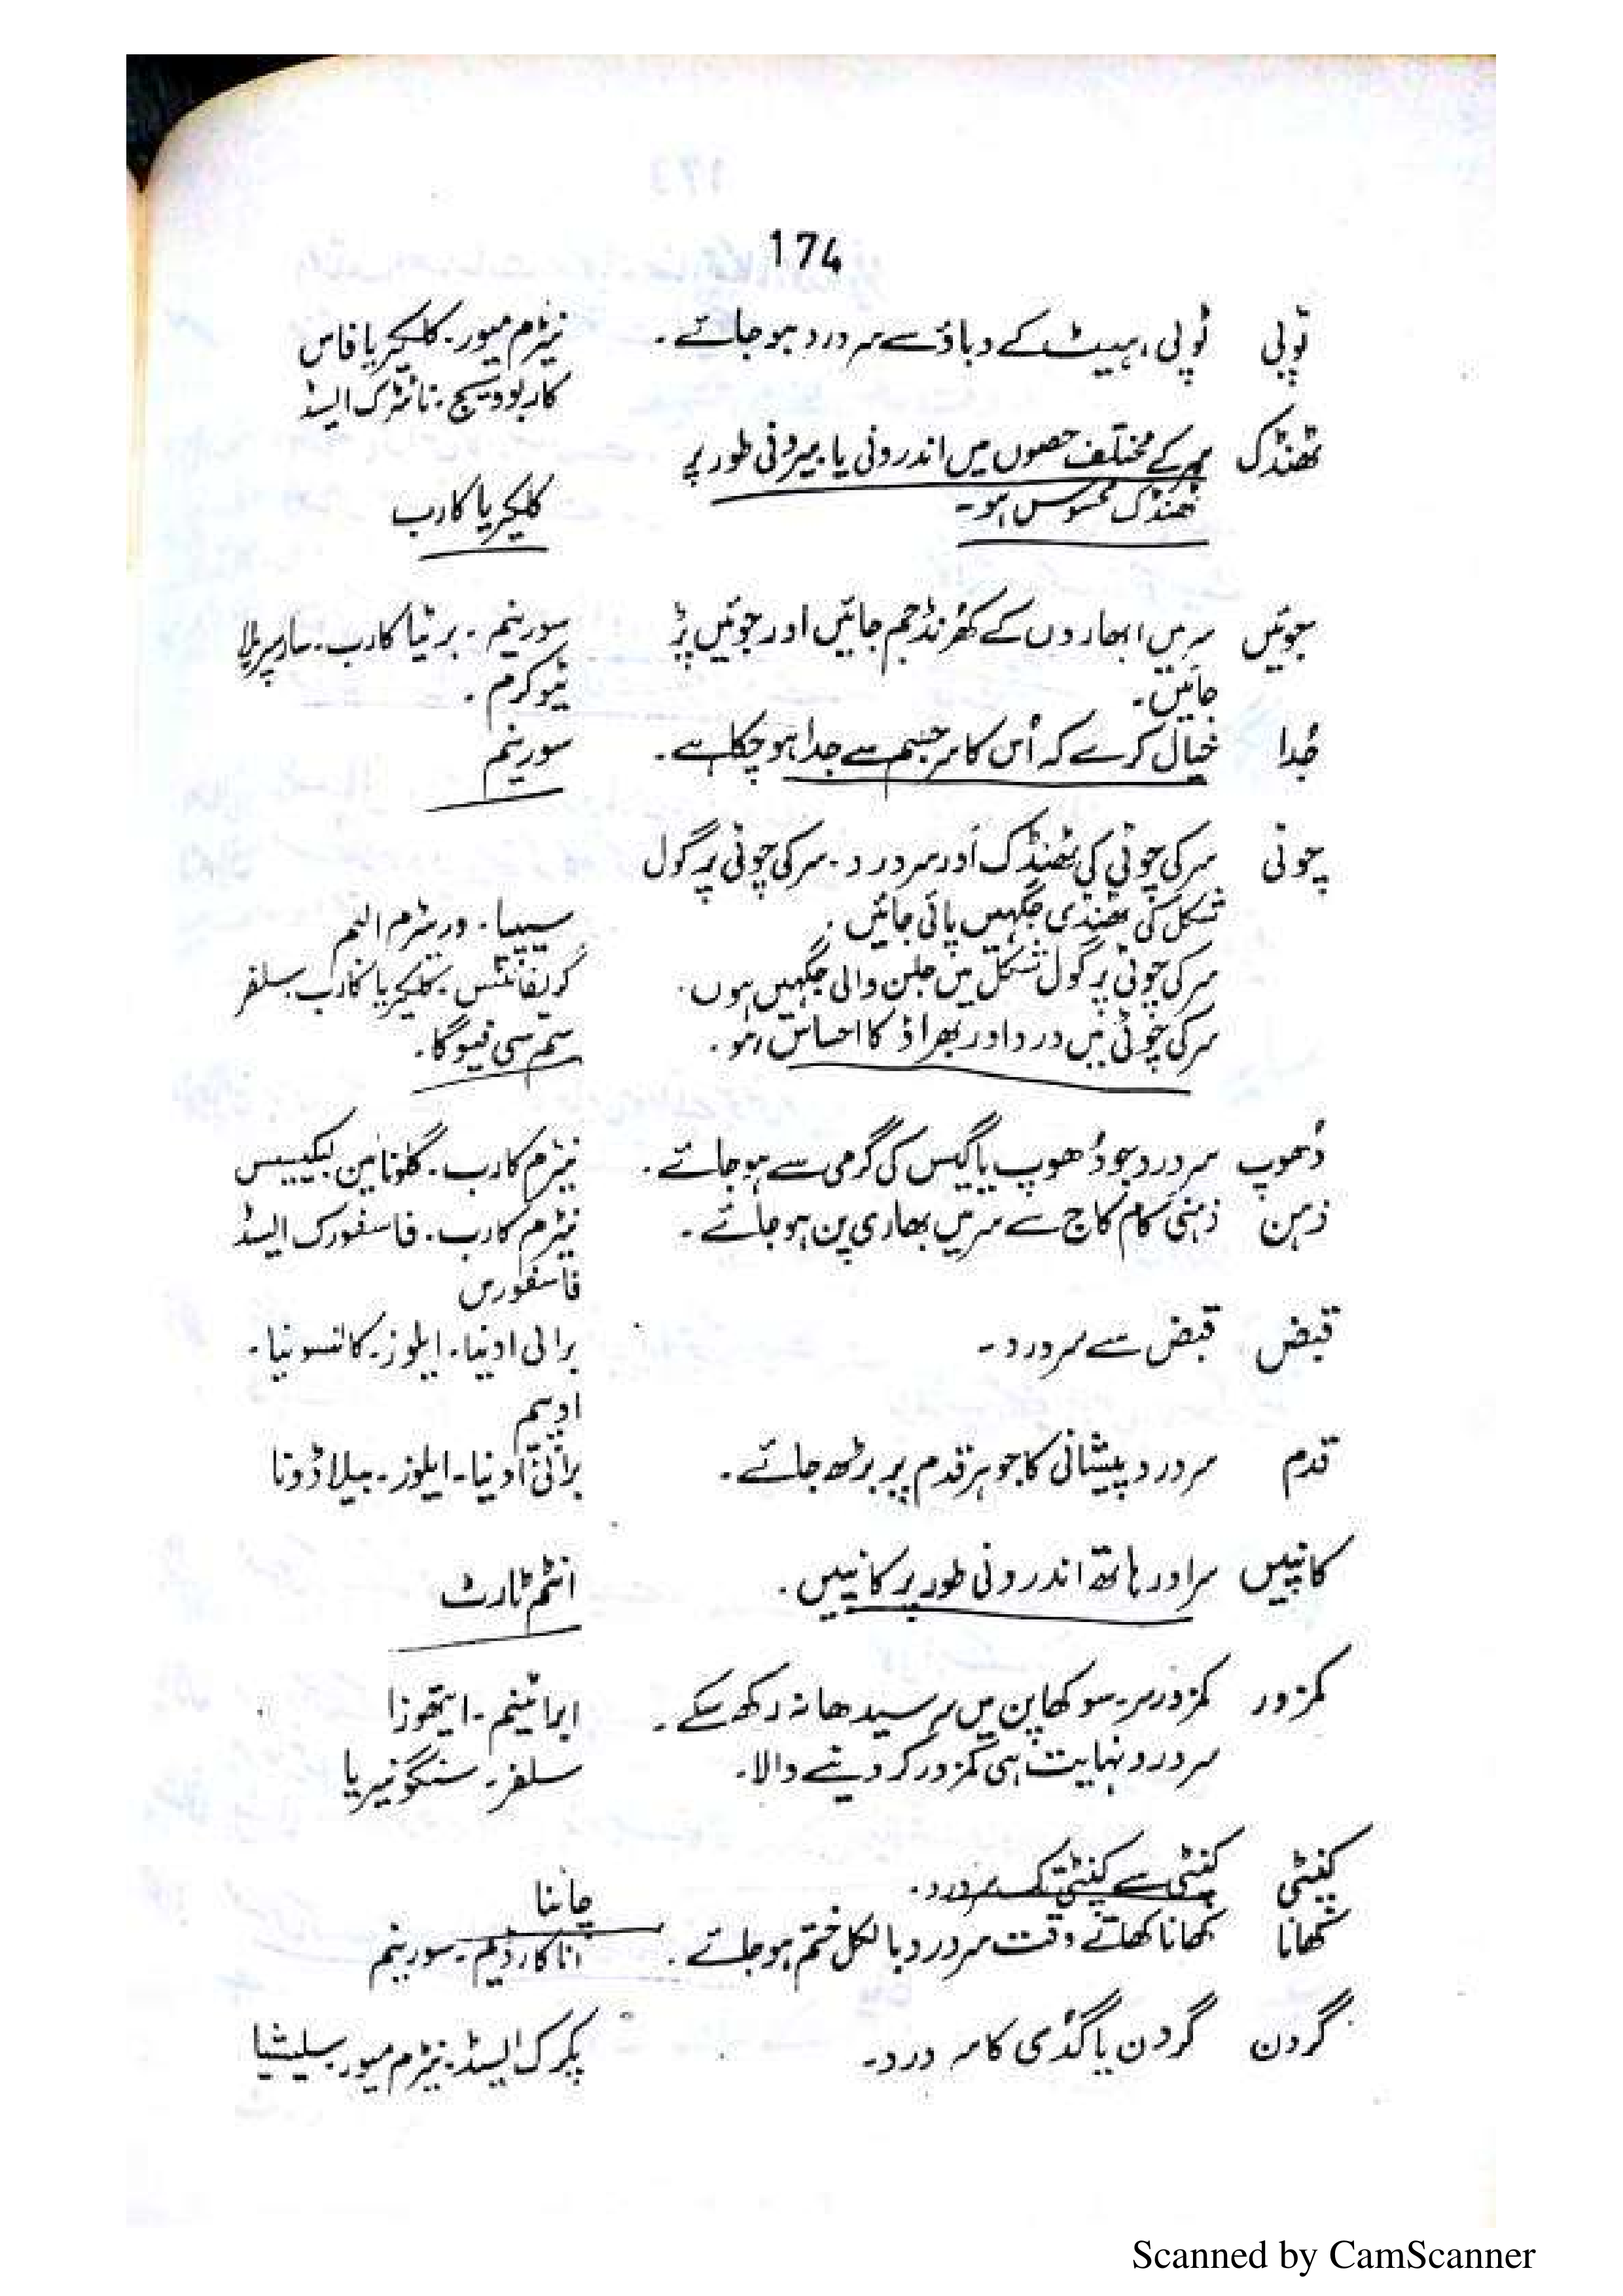 174
ٹوپی ٹوپی، ہیٹ کے دباؤ سے سر درد ہو جائے۔ نیٹرم میور۔ کلیکریا فاس
کاربوویج۔ نائٹرک ایسڈ
ٹھنڈک سر کے مختلف حصوں میں اندرونی یا بیرونی طور پر
ٹھنڈک محسوس ہو۔ کلیکریا کارب
جوئیں سر میں ابھاروں کے کھرنڈ جم جائیں اور جوئیں پڑ سورینم۔ برئیٹا کارب۔
جائیں۔
جُدا خیال کرے کہ اُس کا سر جسم سے جدا ہو چکا ہے۔ سورینم
چوٹی سر کی چوٹی کی ٹھنڈک اور سر درد۔ سر کی چوٹی پر گول
شکل کی ٹھنڈی جگہیں پائی جائیں۔ سیپیا۔ وریٹرم البم
سر کی چوٹی پر گول شکل میں جلن والی جگہیں ہوں۔ گریفائٹس۔ کلیکریا کارب۔ سلفر
سر کی چوٹی میں درد اور بھراؤ کا احساس ہو۔ سمی سی فیوگا۔
دُھوپ سر درد جو دُھوپ یا گیس کی گرمی سے ہو جائے۔ نیٹرم کارب۔ گلونائین لیکیسس
ذہن ذہنی کام کاج سے سر میں بھاری پن ہو جائے۔ نیٹرم کارب۔ فاسفورک ایسڈ
فاسفورس
قبض قبض سے سر درد۔ برائی اونیا۔ ایلوز۔ کالنسونیا۔
اوپیم
قدم سر درد پیشانی کا جو ہر قدم پر بڑھ جائے۔ برائی اونیا۔ ایلوز۔ بیلاڈونا
کانپیں سر اور ہاتھ اندرونی طور پر کانپیں۔ انٹم ٹارٹ
کمزور کمزور سر۔ سوکھا پن میں سر سیدھا نہ رکھ سکے۔ ابراٹینم۔ ایتھوزا
سر درد نہایت ہی کمزور کر دینے والا۔ سلفر۔ سنگونیریا
کنپٹی کنپٹی سے کنپٹی تک سر درد۔ چائنا
کھانا کھانا کھاتے وقت سر درد بالکل ختم ہو جائے۔ اناکارڈیم۔ سورینم
گردن گردن یا گدُی کا سر درد۔ پکرک ایسڈ۔ نیٹرم میور۔ سلیشیا
Scanned by CamScanner